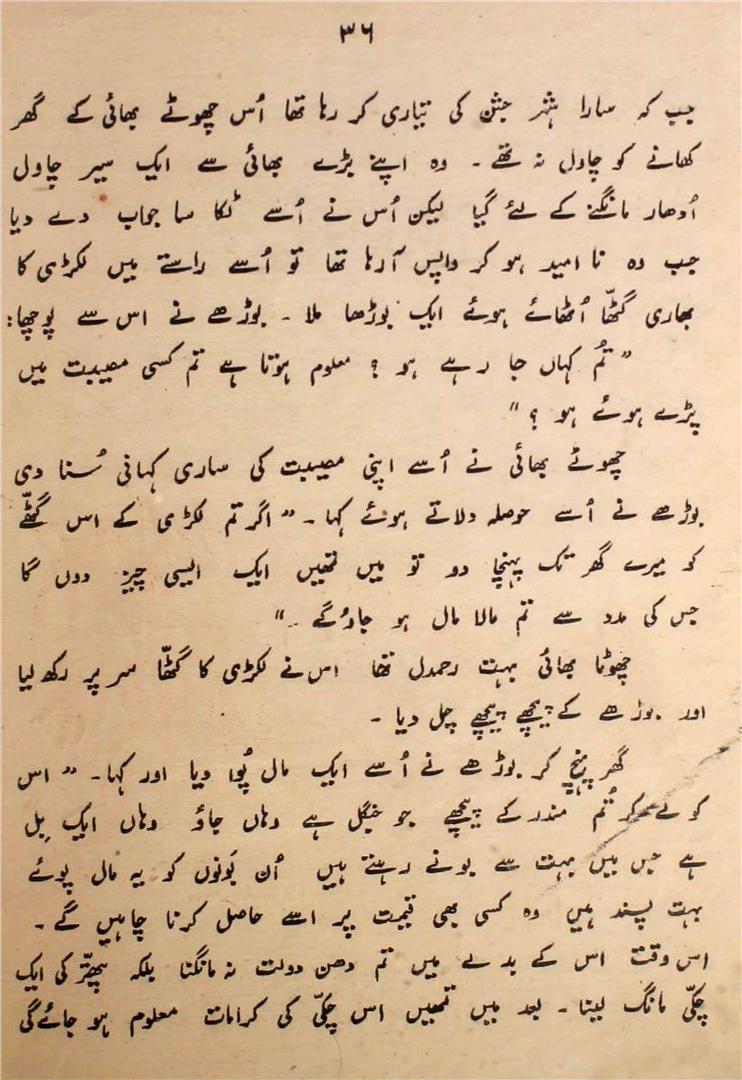 ۳۶
جب کہ سارا شہر جشن کی تیاری کر رہا تھا اُس چھوٹے بھائی کے گھر
کھانے کو چاول نہ تھے ۔ وہ اپنے بڑے بھائی سے ایک سیر چاول
اُدھار مانگنے کے لئے گیا لیکن اُس نے اُسے ٹکا سا جواب دے دیا
جب وہ نا امید ہو کر واپس آ رہا تھا تو اُسے راستے میں لکڑی کا
بھاری گٹھّا اُٹھائے ہوئے ایک بوڑھا ملا ۔ بوڑھے نے اس سے پوچھا :
” تُم کہاں جا رہے ہو ؟ معلوم ہوتا ہے تم کسی مصیبت میں
پڑے ہوئے ہو ؟ “
چھوٹے بھائی نے اُسے اپنی مصیبت کی ساری کہانی سُنا دی
بوڑھے نے اُسے حوصلہ دلاتے ہوئے کہا ۔ ” اگر تم لکڑی کے اس گٹھّے
کو میرے گھر تک پہنچا دو تو میں تمھیں ایک ایسی چیز دوں گا
جس کی مدد سے تم مالا مال ہو جاؤ گے ۔ “
چھوٹا بھائی بہت رحمدل تھا اس نے لکڑی کا گٹھّا سر پر رکھ لیا
اور بوڑھے کے پیچھے پیچھے چل دیا ۔
گھر پہنچ کر بوڑھے نے اُسے ایک مال پُوا دیا اور کہا ۔ ” اس
کو لے کر تُم مندر کے پیچھے جو جنگل ہے وہاں جاؤ وہاں ایک بِل
ہے جس میں بہت سے بونے رہتے ہیں اُن بَونوں کو یہ مال پوئے
بہت پسند ہیں وہ کسی بھی قیمت پر اسے حاصل کرنا چاہیں گے ۔
اس وقت اس کے بدلے میں تم دھن دولت نہ مانگنا بلکہ پتھّر کی ایک
چکّی مانگ لینا ۔ بعد میں تمھیں اس چکّی کی کرامات معلوم ہو جائے گی